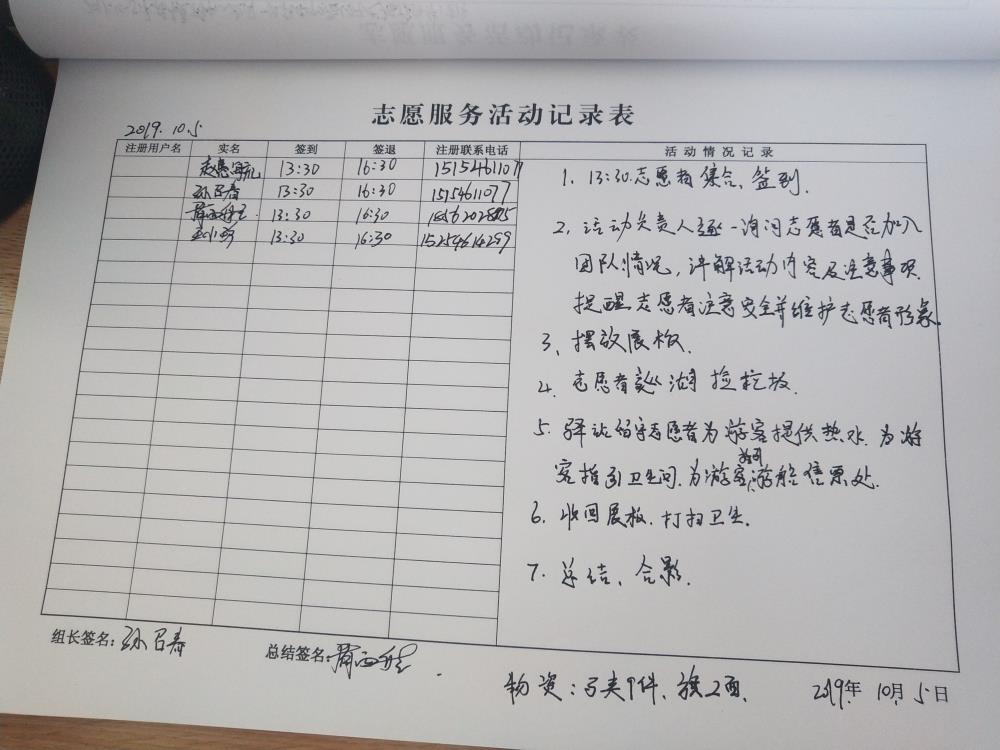 志愿服务活动记录表
2019.10.5
注册用户名 实名 签到 签退 注册联系电话 活动情况记录
13:30 16:30 15154611077
孙召春 13:30 16:30 1515461077
13:30 16:30
13:30 16:30 15254614299
1. 13:30志愿者集合、签到.
2、活动负责人逐一询问志愿者是否加入
团队情况,讲解活动内容及注意事项.
提醒志愿者注意安全并维护志愿者形象.
3、摆放展板.
4. 志愿者巡湖捡垃圾.
5. 驿站留守志愿者为游客提供热水.为游
客指引卫生间.为游客游船售票处.
6. 收回展板.打扫卫生.
7. 总结、合影.
组长签名:孙召春
总结签名:
物资:马夹9件、旗2面.
2019年10月5日